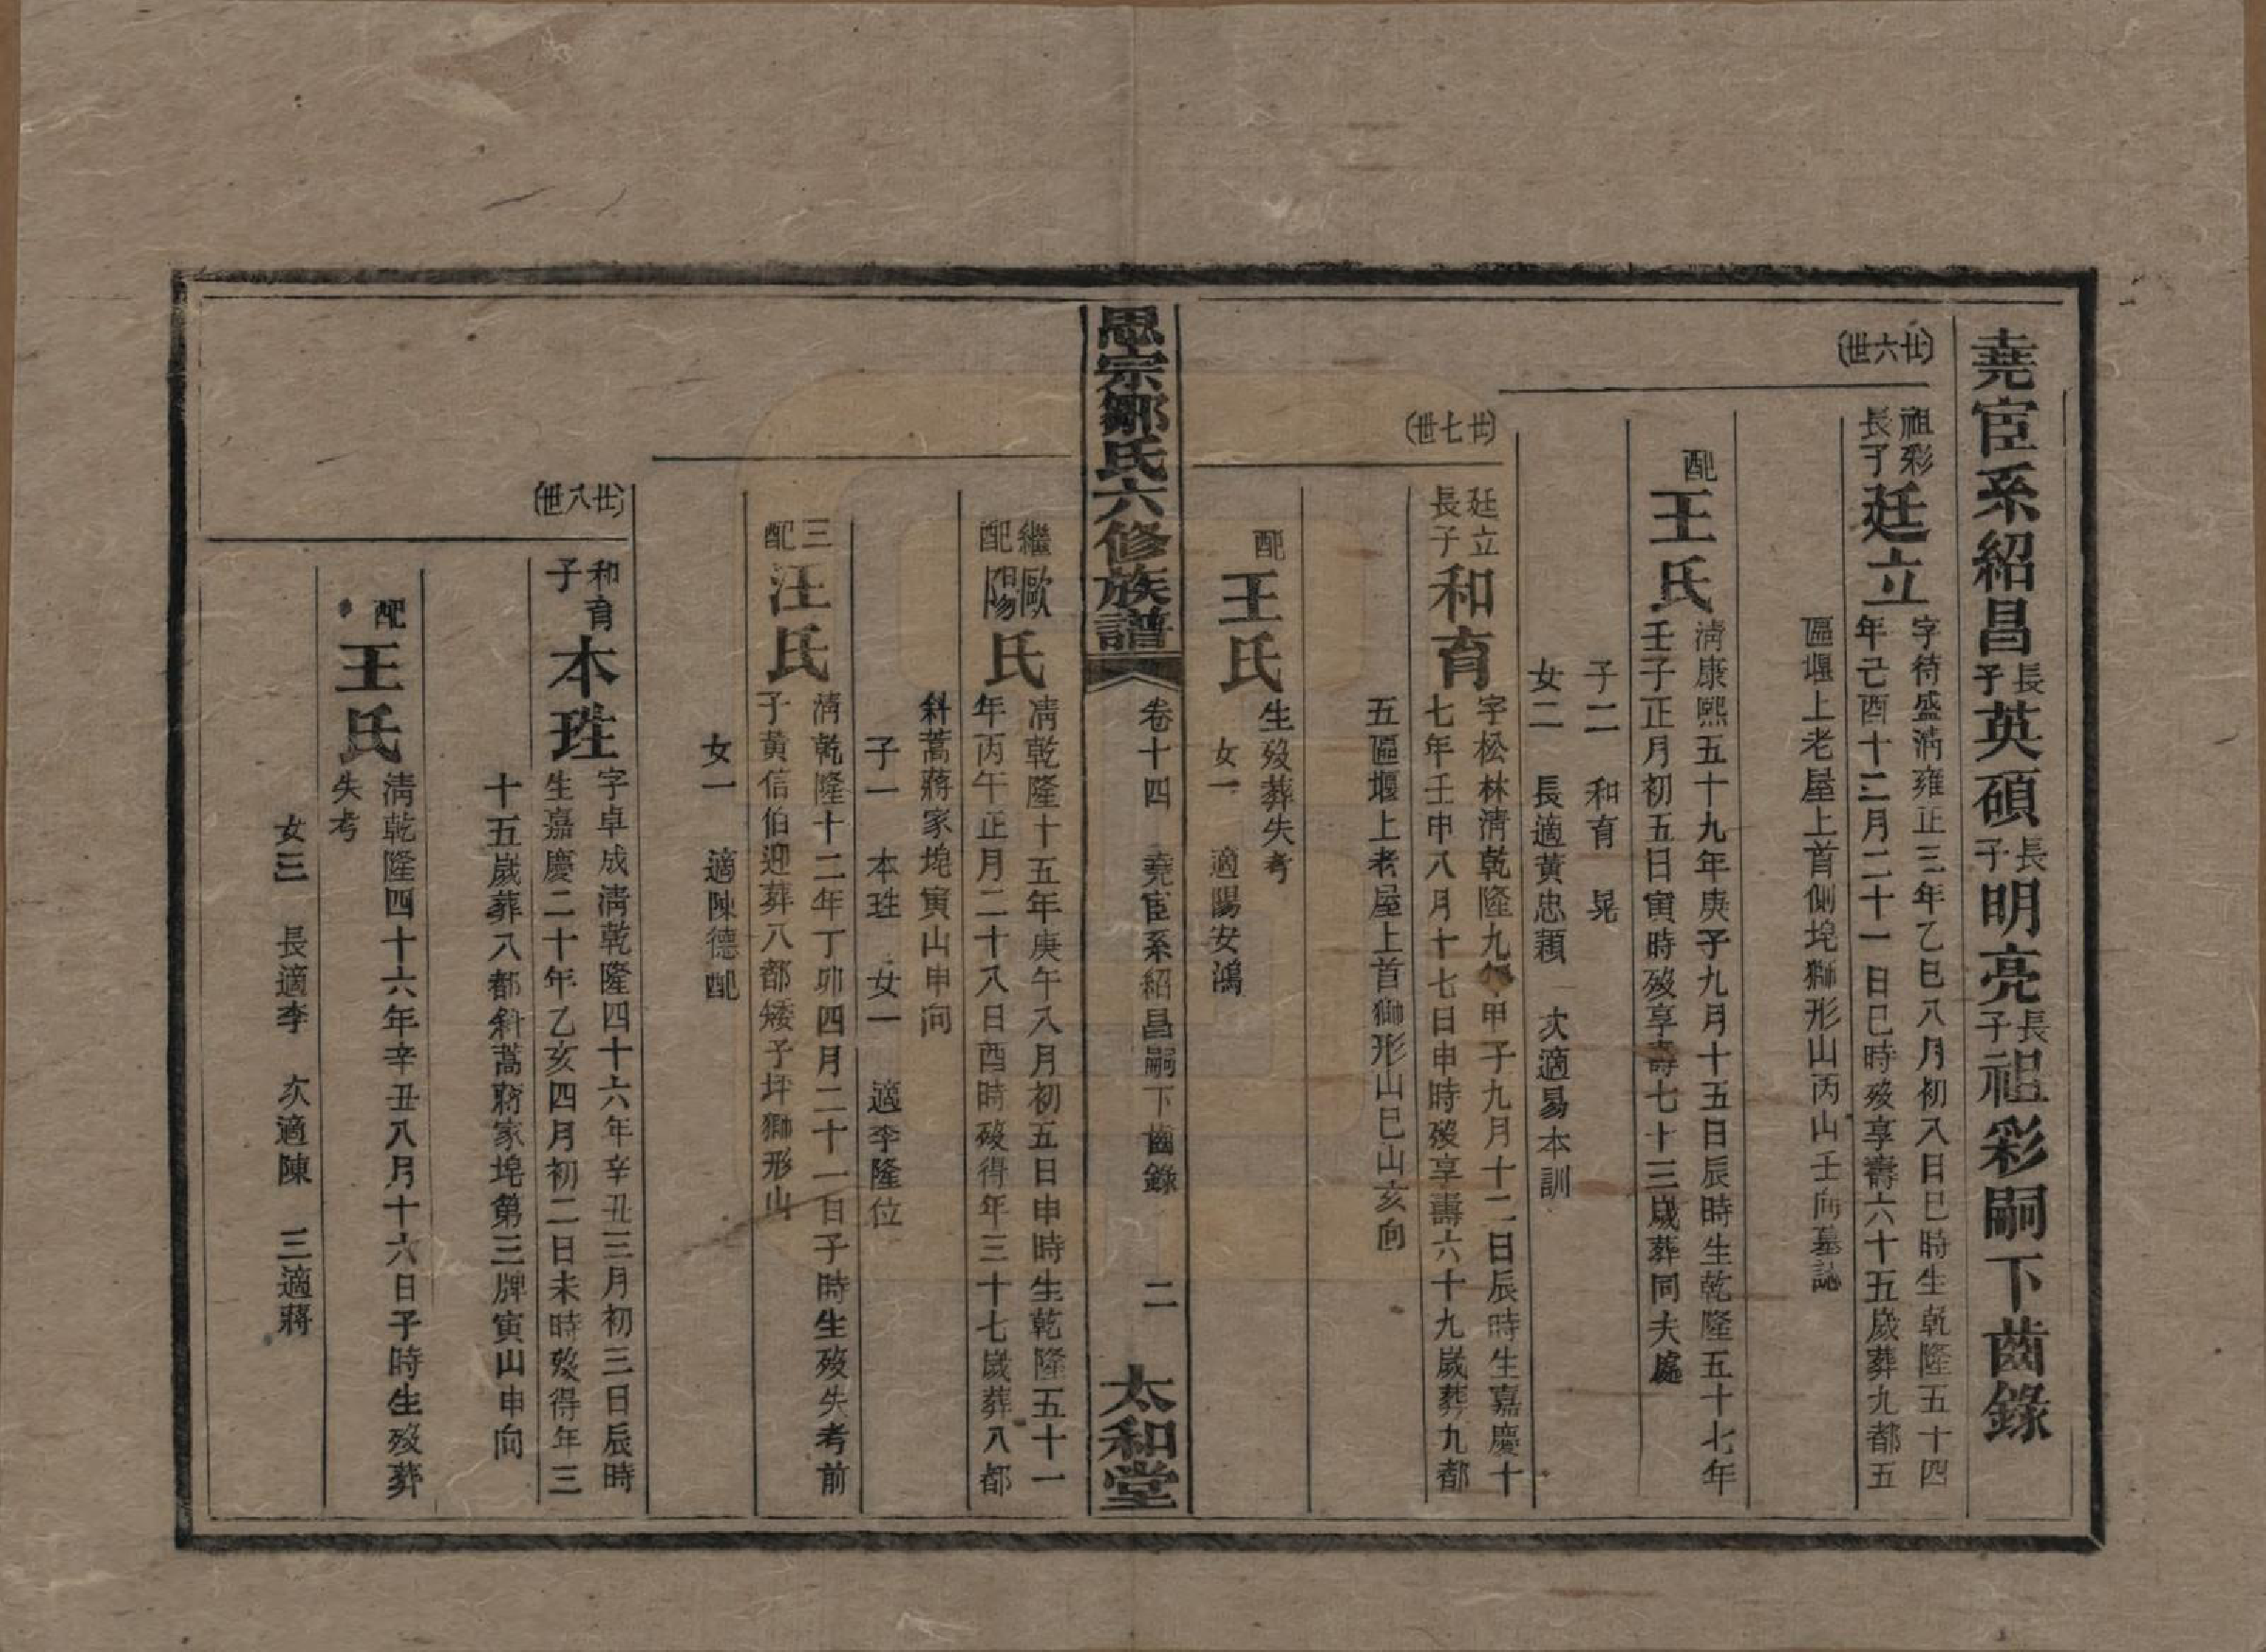 堯宦系紹昌長子英碩長子明亮長子祖彩嗣下齒錄
(廿六世)
祖彩長子廷立
字待盛淸雍正三年乙巳八月初八日巳時生乾隆五十四
年己酉十二月二十一日巳時歿享壽六十五歲葬九都五
區堰上老屋上首側垸獅形山丙山壬向墓誌
配王氏
淸康熙五十九年庚子九月十五日辰時生乾隆五十七年
壬子正月初五日寅時歿享壽七十三歲葬同夫處
子二 和育 晃
女二 長適黃忠頴 次適易本訓
(廿七世)
廷立長子和育
字松林淸乾隆九年甲子九月十二日辰時生嘉慶十
七年壬申八月十七日申時歿享壽六十九歲葬九都
五區堰上老屋上首獅形山巳山亥向
配王氏
生歿葬失考
女一 適陽安鴻
思宗鄒氏六修族譜
卷十四 堯宦系紹昌嗣下齒錄 二 太和堂
繼配歐陽氏
淸乾隆十五年庚午八月初五日申時生乾隆五十一
年丙午正月二十八日酉時歿得年三十七歲葬八都
斜蒿蔣家垸寅山申向
子一 本珄 女一 適李隆位
三配汪氏
淸乾隆十二年丁卯四月二十一日子時生歿失考前
子黃信伯迎葬八都矮子坪獅形山
女一 適陳德配
(廿八世)
和育子本珄
字卓成淸乾隆四十六年辛丑三月初三日辰時
生嘉慶二十年乙亥四月初二日未時歿得年三
十五歲葬八都斜蒿蔣家垸第三牌寅山申向
配王氏
淸乾隆四十六年辛丑八月十六日子時生歿葬
失考
女三 長適李 次適陳 三適蔣